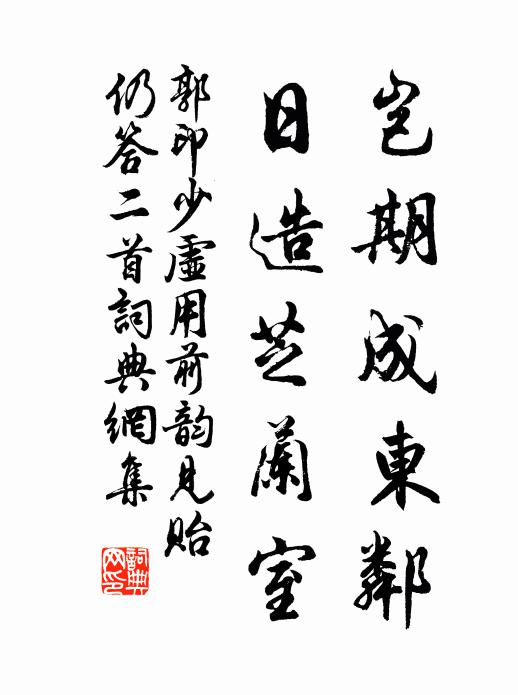 豈期成東鄰
日造芝蘭室
郭印少虛用前韵見貽
仍答二首詞典網集
詞典網印